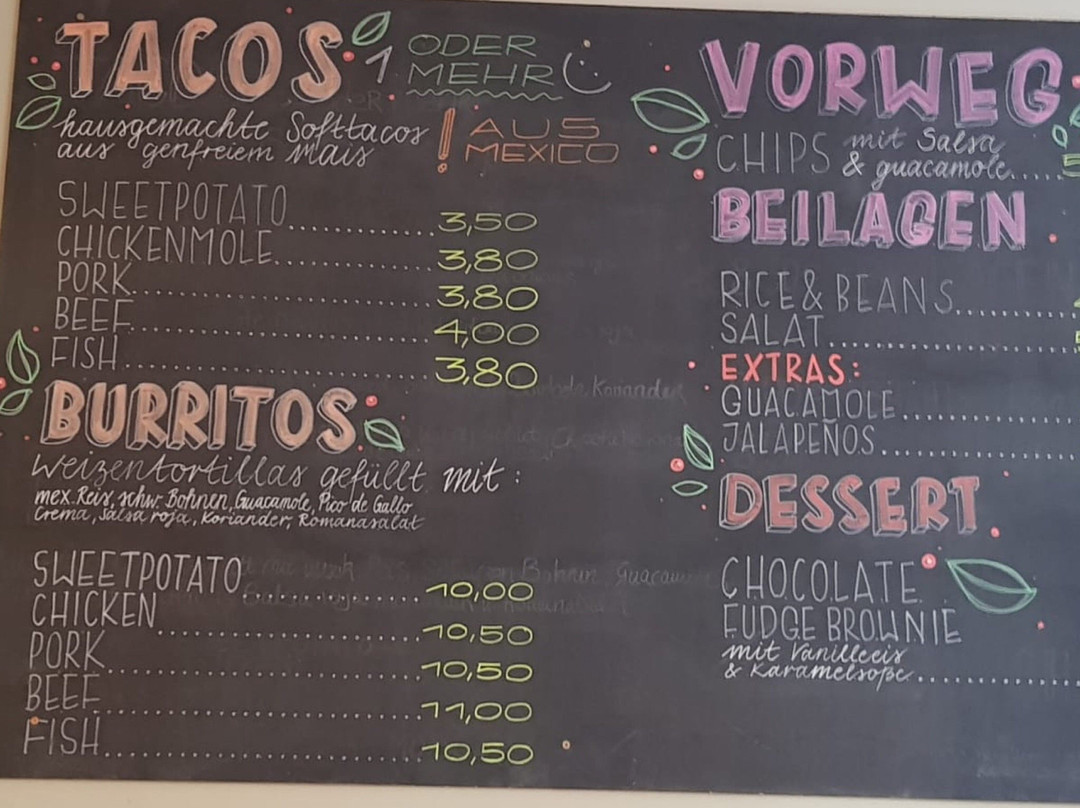 TACOS 1 ODER MEHR
hausgemachte Softtacos
aus genfreiem Mais
! AUS MEXICO
SWEETPOTATO 3,50
CHICKENMOLE 3,80
PORK 3,80
BEEF 4,00
FISH 3,80
BURRITOS
Weizentortillas gefüllt mit:
mex. Reis, schw. Bohnen, Guacamole, Pico de Gallo
Crema, Salsa roja, Koriander, Romanasalat
SWEETPOTATO 10,00
CHICKEN 10,50
PORK 10,50
BEEF 11,00
FISH 10,50
VORWEG
CHIPS mit Salsa
& guacamole
BEILAGEN
RICE & BEANS
SALAT
EXTRAS:
GUACAMOLE
JALAPEÑOS
DESSERT
CHOCOLATE
FUDGE BROWNIE
mit Vanilleeis
& Karamelsoße